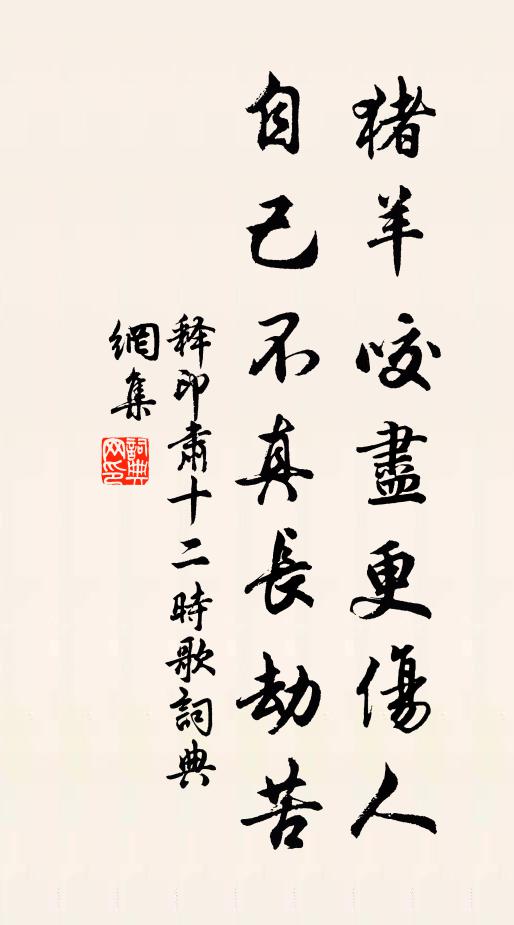 猪羊咬盡更傷人
自己不真長劫苦
释印肃十二時歌詞典
網集
詞典网印